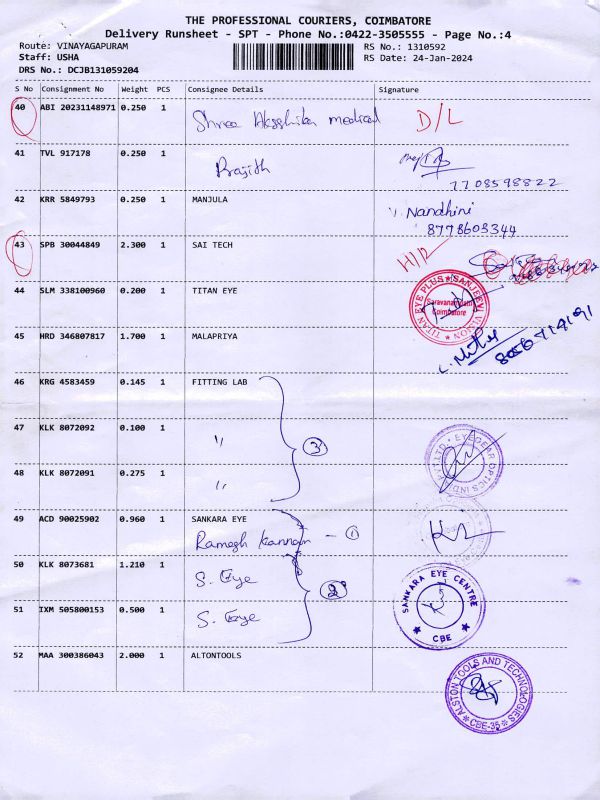 THE PROFESSIONAL COURIERS, COIMBATORE
Delivery Runsheet - SPT - Phone No.:0422-3505555 - Page No.:4
Route: VINAYAGAPURAM RS No.: 1310592
Staff: USHA RS Date: 24-Jan-2024
DRS No.: DCJB131059204
S No Consignment No Weight PCS Consignee Details Signature
40 ABI 20231148971 0.250 1 Shree medical D/L
41 TVL 917178 0.250 1 Prajith
7708598822
42 KRR 5849793 0.250 1 MANJULA Nandhini
8778603344
43 SPB 30044849 2.300 1 SAI TECH H/R
44 SLM 338100960 0.200 1 TITAN EYE
TITAN EYE PLUS ★ SANJEEV VISION ★
Coimbatore
45 HRD 346807817 1.700 1 MALAPRIYA
46 KRG 4583459 0.145 1 FITTING LAB
47 KLK 8072092 0.100 1 "
3
48 KLK 8072091 0.275 1 "
49 ACD 90025902 0.960 1 SANKARA EYE
Ramesh Kannan - 1
50 KLK 8073681 1.210 1 S. Eye
2
SANKARA EYE CENTRE
★ CBE ★
51 IXM 505800153 0.500 1 S. Eye
52 MAA 300386043 2.000 1 ALTONTOOLS
ALSTON TOOLS AND TECHNOLOGIES
★ CBE-35 ★